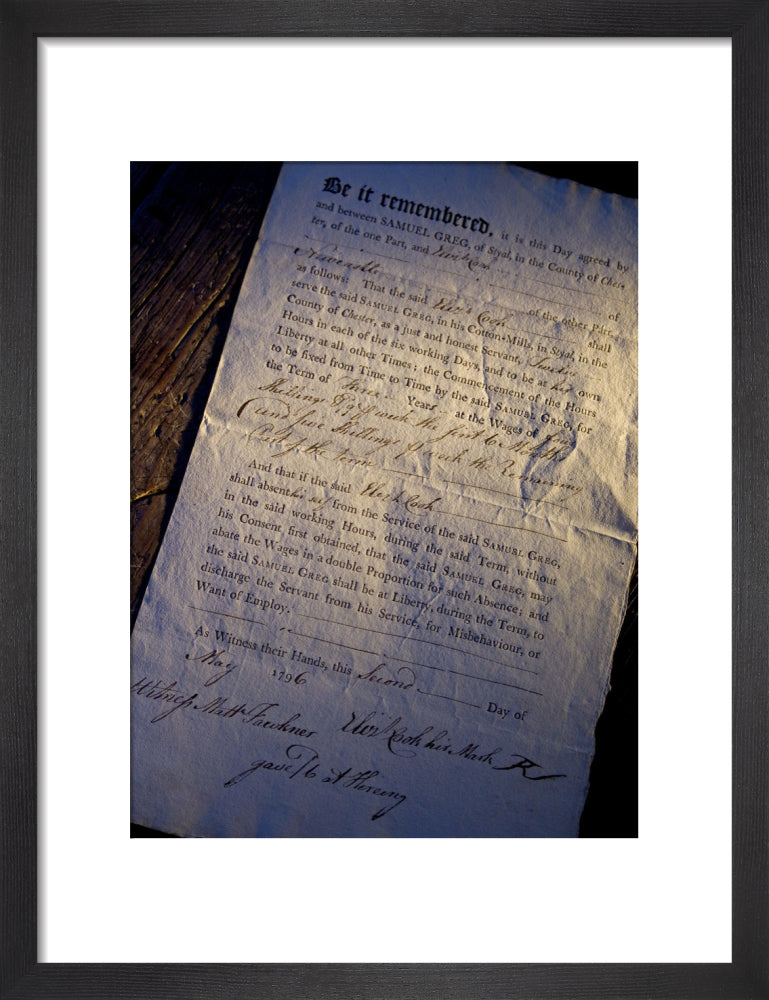 Be it remembered, it is this Day agreed by
and between SAMUEL GREG, of Styal, in the County of Ches-
ter, of the one Part, and
Newcastle of
of the other Part,
as follows: That the said Cook shall
serve the said SAMUEL GREG, in his Cotton-Mills, in Styal, in the
County of Chester, as a just and honest Servant, Twelve
Hours in each of the six working Days, and to be at his own
Liberty at all other Times; the Commencement of the Hours
to be fixed from Time to Time by the said SAMUEL GREG, for
the Term of Three Years at the Wages of
Shillings week the first 6 Months
and five Shillings week the Remaining
Part of the term
And that if the said Cook
shall absent his self from the Service of the said SAMUEL GREG,
in the said working Hours, during the said Term, without
his Consent first obtained, that the said SAMUEL GREG, may
abate the Wages in a double Proportion for such Absence; and
the said SAMUEL GREG shall be at Liberty, during the Term, to
discharge the Servant from his Service, for Misbehaviour, or
Want of Employ.
As Witness their Hands, this Second Day of
May 1796
Witness Matt Fawkner Cook his Mark
gave at Hireing